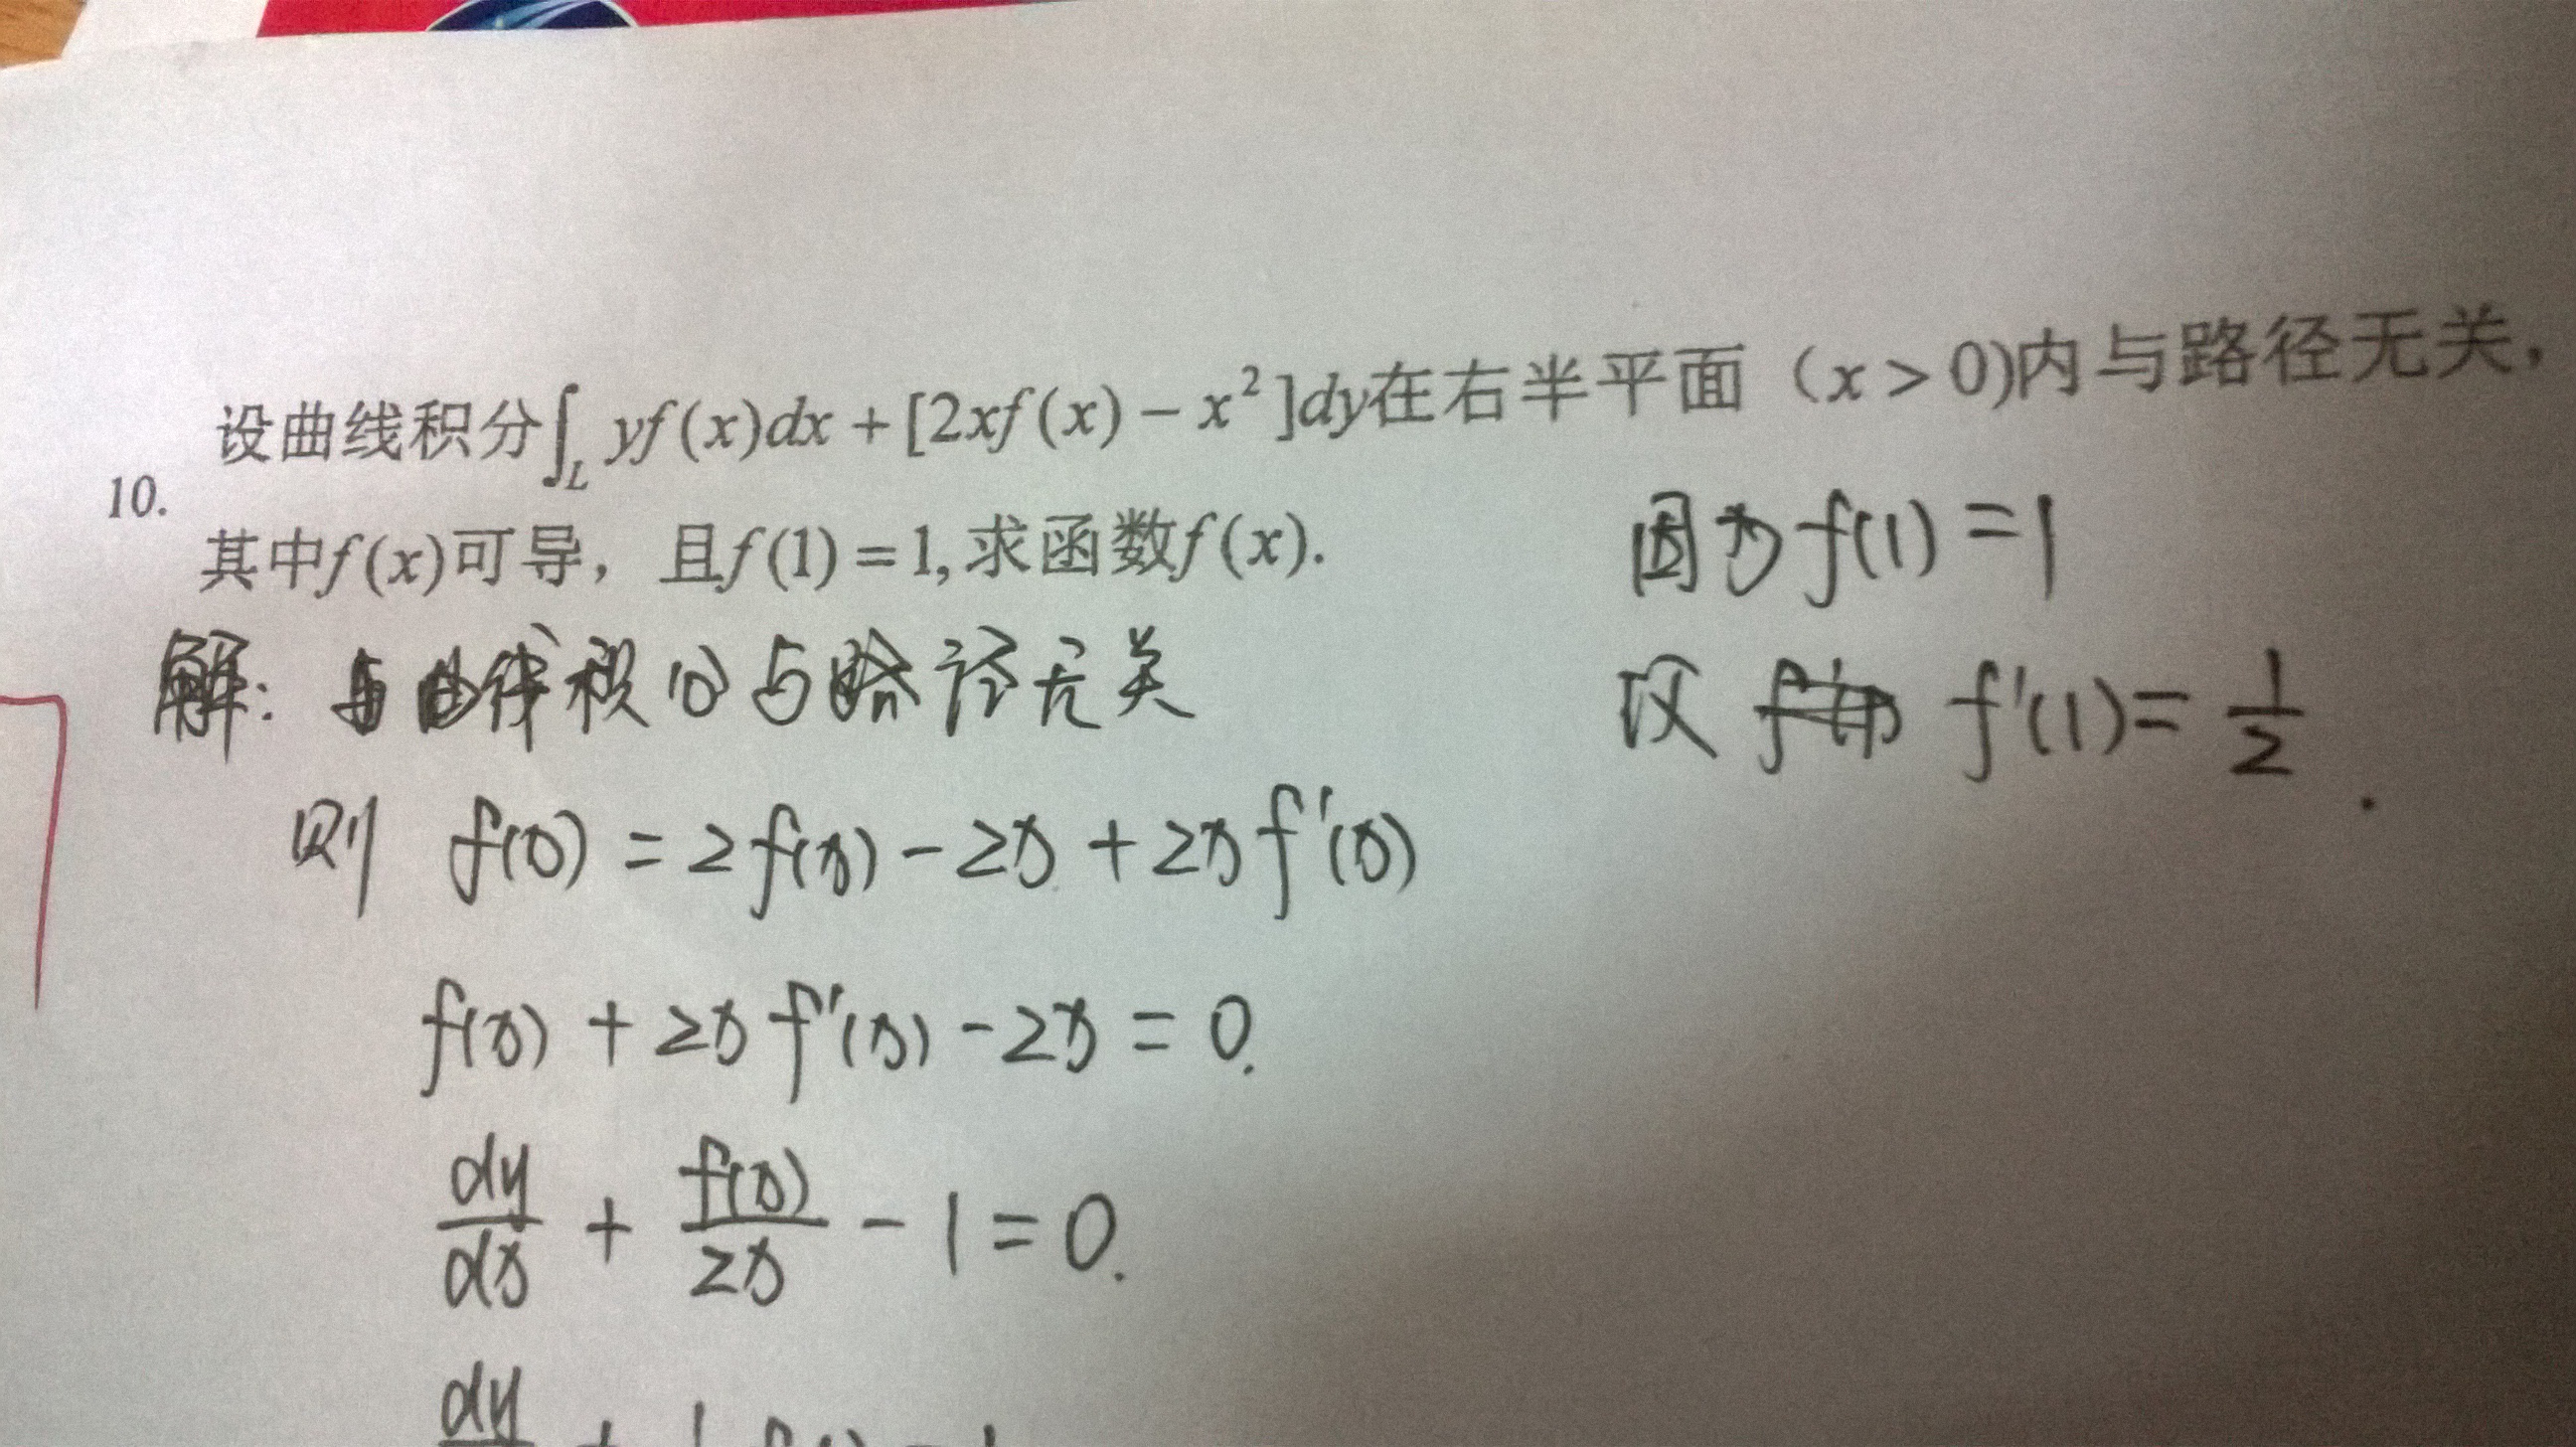 设曲线积分∫_L yf(x)dx + [2xf(x) − x²]dy在右半平面（x > 0)内与路径无关，
10.
其中f(x)可导，且f(1) = 1,求函数f(x).
解: 曲线积分与路径无关
则 f(x) = 2f(x) - 2x + 2x f'(x)
f(x) + 2x f'(x) - 2x = 0.
dy/dx + f(x)/2x - 1 = 0.
dy
因为 f(1) = 1
又 f'(1) = 1/2 .